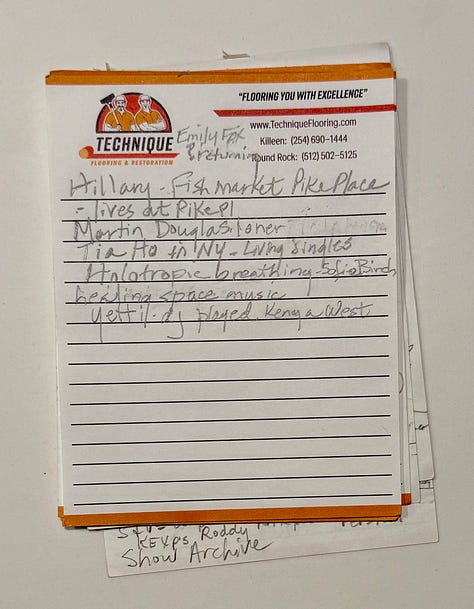 "FLOORING YOU WITH EXCELLENCE"
TECHNIQUE
FLOORING & RESTORATION
www.TechniqueFlooring.com
Killeen: (254) 690-1444
ound Rock: (512) 502-5125
Emily Fox
returning
Hillary - Fishmarket Pike Place
- lives at Pike Pl
Martin Douglas
Tia Ho in NY - Living Singles
Holotropic breathing - Sofie Birch
healing space music
Yetti. dj played Kenya West
KEXPs Roddy
Show Archive